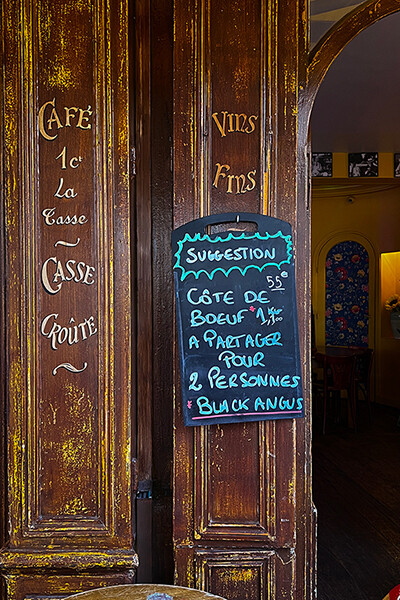 CAFÉ
1ct
La
Tasse
CASSE
CROÛTE
Vins
Fins
SUGGESTION
55€
CÔTE DE
BOEUF *1,100
A PARTAGER
POUR
2 PERSONNES
* BLACK ANGUS